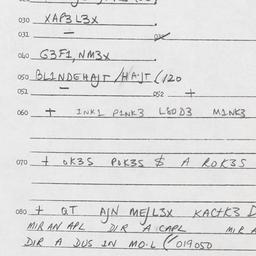 030 XAP3L3X
031 —
060 G3F1,NM3X
050 BLINDEHAJT/HAJT(120
051 — 052 +
060 + INK1 PINK3 L80D3 MINK3
070 + OK3S POK3S $ A ROK3S
080 + QT AJN MEJL3X KACHK3
MIR AN APL DIR A CAPL MIR A
DIR A DUS IN MO.L (019050